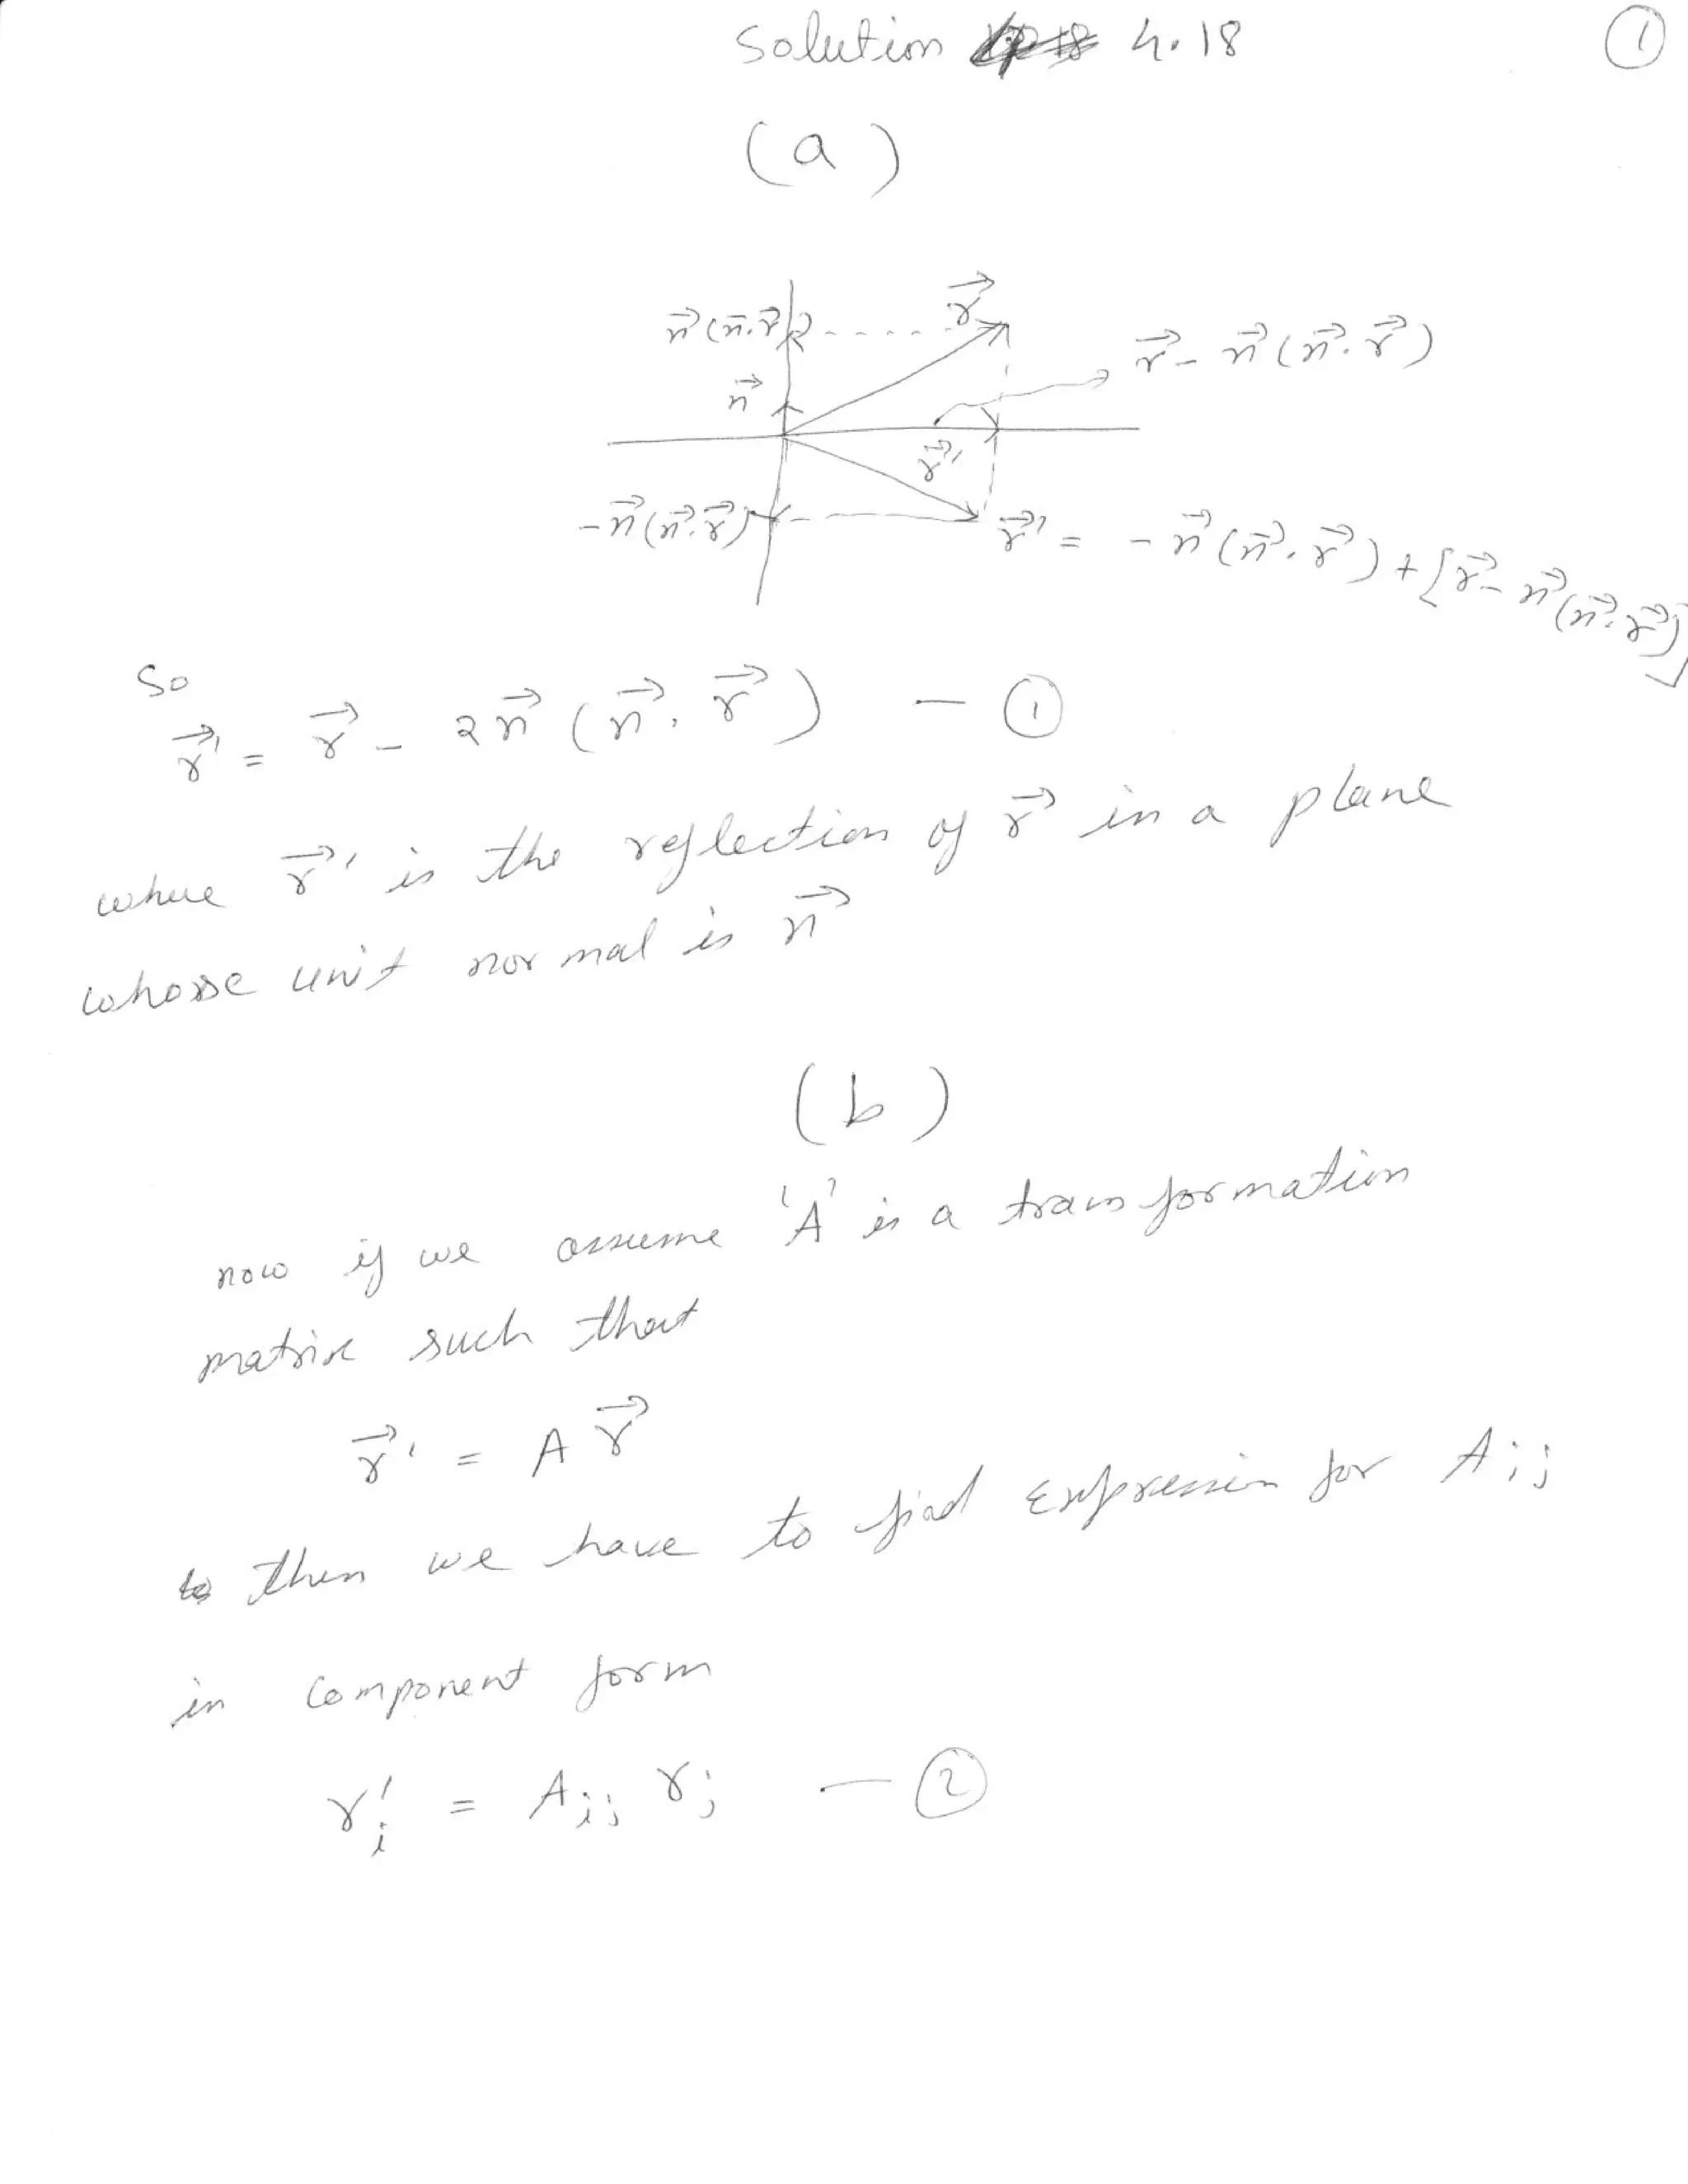 Solution 4.18
①
(a)
n⃗(n⃗.r⃗)
r⃗
r⃗ - n⃗(n⃗.r⃗)
n⃗
r⃗'
-n⃗(n⃗.r⃗)
r⃗' = -n⃗(n⃗.r⃗) + [r⃗ - n⃗(n⃗.r⃗)]
So
r⃗' = r⃗ - 2n⃗(n⃗.r⃗) - ①
where r⃗' is the reflection of r⃗ in a plane
whose unit normal is n⃗
(b)
now if we assume 'A' is a transformation
matrix such that
r⃗' = A r⃗
then we have to find Expression for Aij
in Component form
ri' = Aij rj - ②